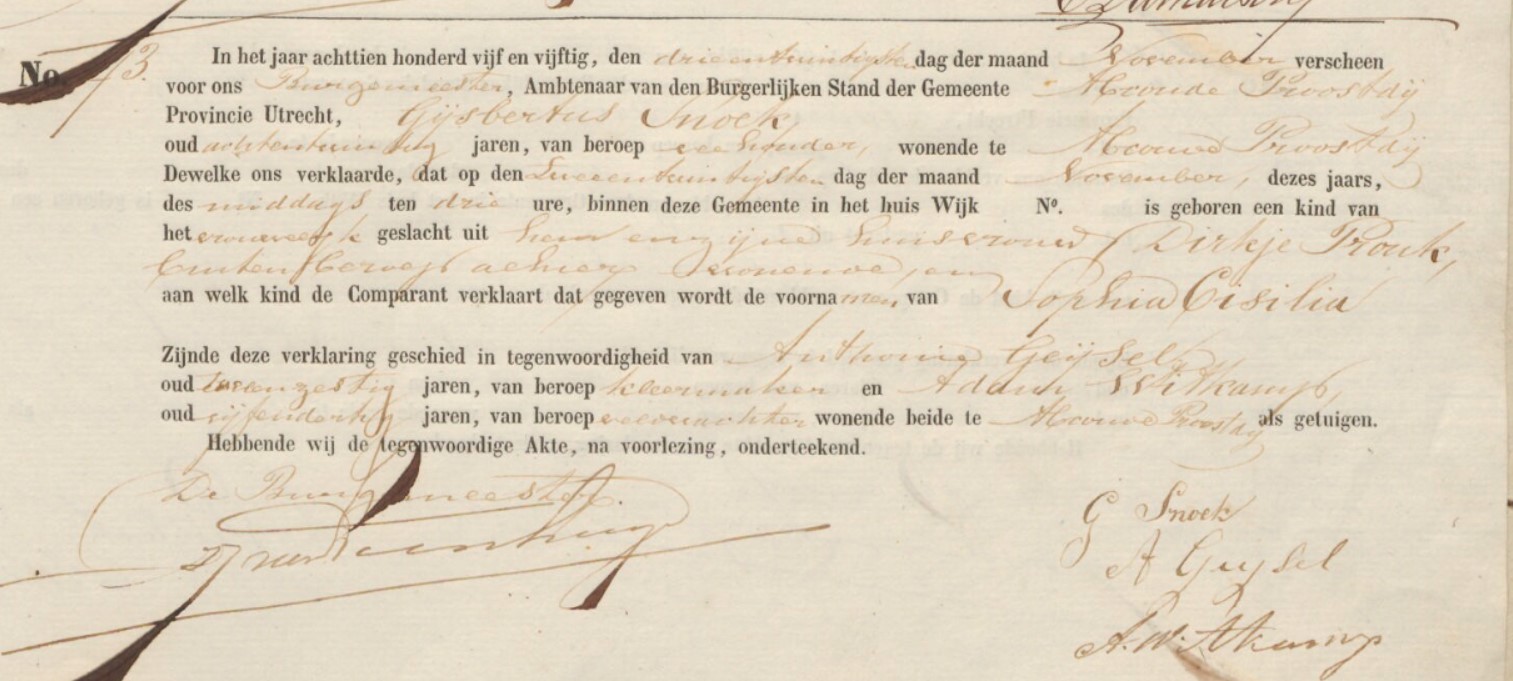 No. 73. In het jaar achttien honderd vijf en vijftig, den drieentwintigsten dag der maand November verscheen
voor ons Burgemeester, Ambtenaar van den Burgerlijken Stand der Gemeente Abcoude Proostdij
Provincie Utrecht, Gijsbertus Snoek,
oud achtentwintig jaren, van beroep veehouder, wonende te Abcoude Proostdij
Dewelke ons verklaarde, dat op den tweeentwintigsten dag der maand November, dezes jaars,
des middags ten drie ure, binnen deze Gemeente in het huis Wijk No. is geboren een kind van
het vrouwelijk geslacht uit hem en zijne huisvrouw Dirkje Pronk,
buiten beroep alhier wonende, en
aan welk kind de Comparant verklaart dat gegeven wordt de voornamen van Sophia Cisilia
Zijnde deze verklaring geschied in tegenwoordigheid van Anthonie Geijsel,
oud tweeenzestig jaren, van beroep kleermaker en Adam Witkamp,
oud vijfendertig jaren, van beroep veldwachter wonende beide te Abcoude Proostdij als getuigen.
Hebbende wij de tegenwoordige Akte, na voorlezing, onderteekend.
De Burgemeester.
G Snoek
A Geijsel
A. Witkamp